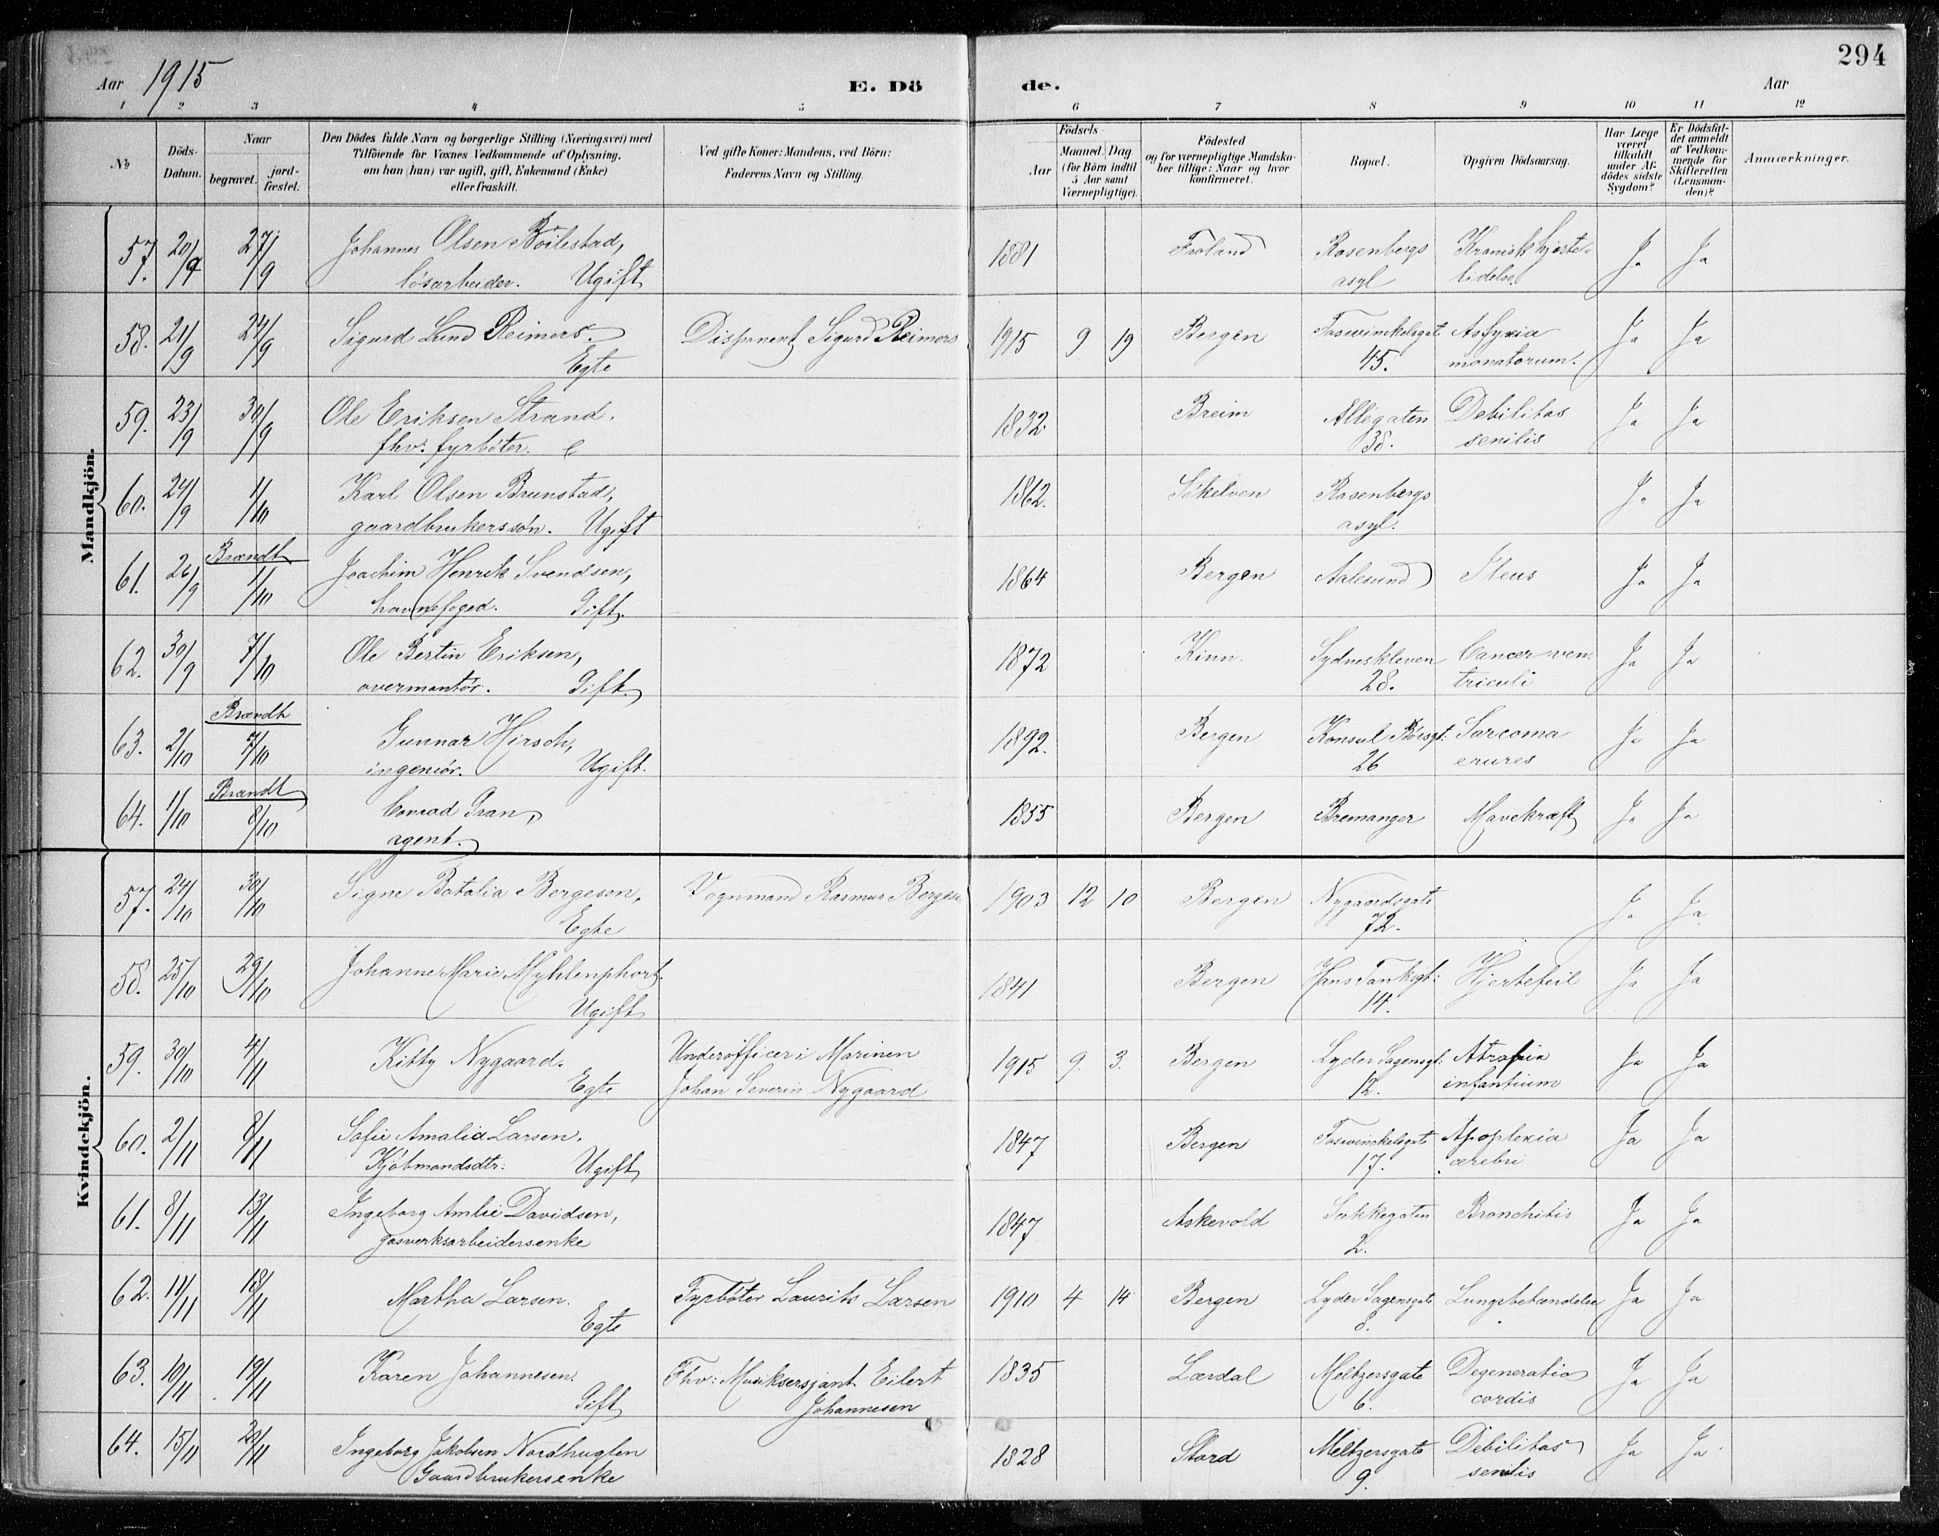 294
Aar 1915 E. Dö de. Aar
1 2 3 4 5 6 7 8 9 10 11 12
No
Döds-Datum.
Naar
begravet.
jord-fæstet.
Den Dödes fulde Navn og borgerlige Stilling (Næringsvei) med
Tilföiende for Voxnes Vedkommende af Oplysning,
om han (hun) var ugift, gift, Enkemand (Enke)
eller fraskilt.
Ved gifte Koner: Mandens, ved Börn:
Faderens Navn og Stilling.
Födsels-
Aar
Maaned. Dag
(for Börn indtil
5 Aar samt
Værnepligtige).
Födested
og for værnepligtige Mandska-
ber tillige: Naar og hvor
konfirmeret.
Bopæl.
Opgiven Dödsaarsag.
Har Læge
været
tilkaldt
under Af-
dödes sidste
Sygdom?
Er Dödsfal-
det anmeldt
af Vedkom-
mende for
Skifteretten
(Lensman-
den)?
Anmærkninger.
Mandkjön.
57. 20/9 27/9 Johannes Olsen Böilestad, 1881 Froland Rosenbergs Kronisk hjerte- Ja Ja
løsarbeider. Ugift asyl lidelse
58. 21/9 24/9 Sigurd Lund Reimers. Disponent Sigurd Reimers 1915 9 19 Bergen Foswinckelsgat Asfyxia Ja Ja
Egte 45. monatorum.
59. 23/9 30/9 Ole Eriksen Strand. 1832. Breim Allegaten Debilitas Ja Ja
fhv. fyrbøter. e 38. senilis
60. 24/9 1/10 Karl Olsen Brunstad, 1862. Søkelven Rosenbergs Ja Ja
gaardbrukerssøn. Ugift asyl.
61. 26/9 Brændt 1/10 Joachim Henrik Svendsen, 1864 Bergen Aalesund Ileus Ja Ja
havnefoged. Gift.
62. 30/9 7/10 Ole Bertin Eriksen, 1872 Kinn. Sydneskleven Cancer ven- Ja Ja
overmontør. Gift. 28. triculi
63. 2/10 Brændt 7/10 Gunnar Hirsch, 1892. Bergen Konsul Børsgt: Sarcoma Ja Ja
ingeniør. Ugift. 26 crures
64. 1/10 Brændt 8/10 Conrad Gran, 1855 Bergen Bremanger Mavekræft Ja Ja
agent.
Kvindekjön.
57. 24/10 30/10 Signe Batalia Bergeson, Vognmand Rasmus Bergesen 1903 12 10 Bergen Nygaardsgate Ja Ja
Egte 72.
58. 25/10 29/10 Johanne Marie Myhlenphort. 1841 Bergen Hans Tanksgt: Hjertefeil Ja Ja
Ugift 14.
59. 30/10 4/11 Kitty Nygaard. Underofficer i Marinen 1915 9. 3. Bergen Lyder Sagensgt: Atrofia Ja Ja
Egte Johan Severin Nygaard 12. infantium
60. 2/11 8/11 Sofie Amalia Larsen. 1847 Bergen Foswinckelsgat Apoplexia Ja Ja
Kjøbmandsdtr: Ugift 17. cerebri
61. 8/11 13/11 Ingeborg Amlie Davidsen, 1847 Askevold Sækkegaten Bronchitis Ja Ja
gasverksarbeidersenke 2.
62. 11/11 18/11 Martha Larsen. Fyrbøter Laurits Larsen 1910 4 14 Bergen Lyder Sagensgate Lungebetændelse Ja Ja
Egte 8.
63. 10/11 19/11 Karen Johannesen. Fhv: Musiksersjant Eilert 1835 Lærdal Meltzersgate Degeneratio Ja Ja
Gift Johannesen 6. cordis
64. 15/11 20/11 Ingeborg Jakobsen Nordhuglen 1828 Stord Meltzersgate Debilitas Ja Ja
Gaardbrukersenke 9. senilis